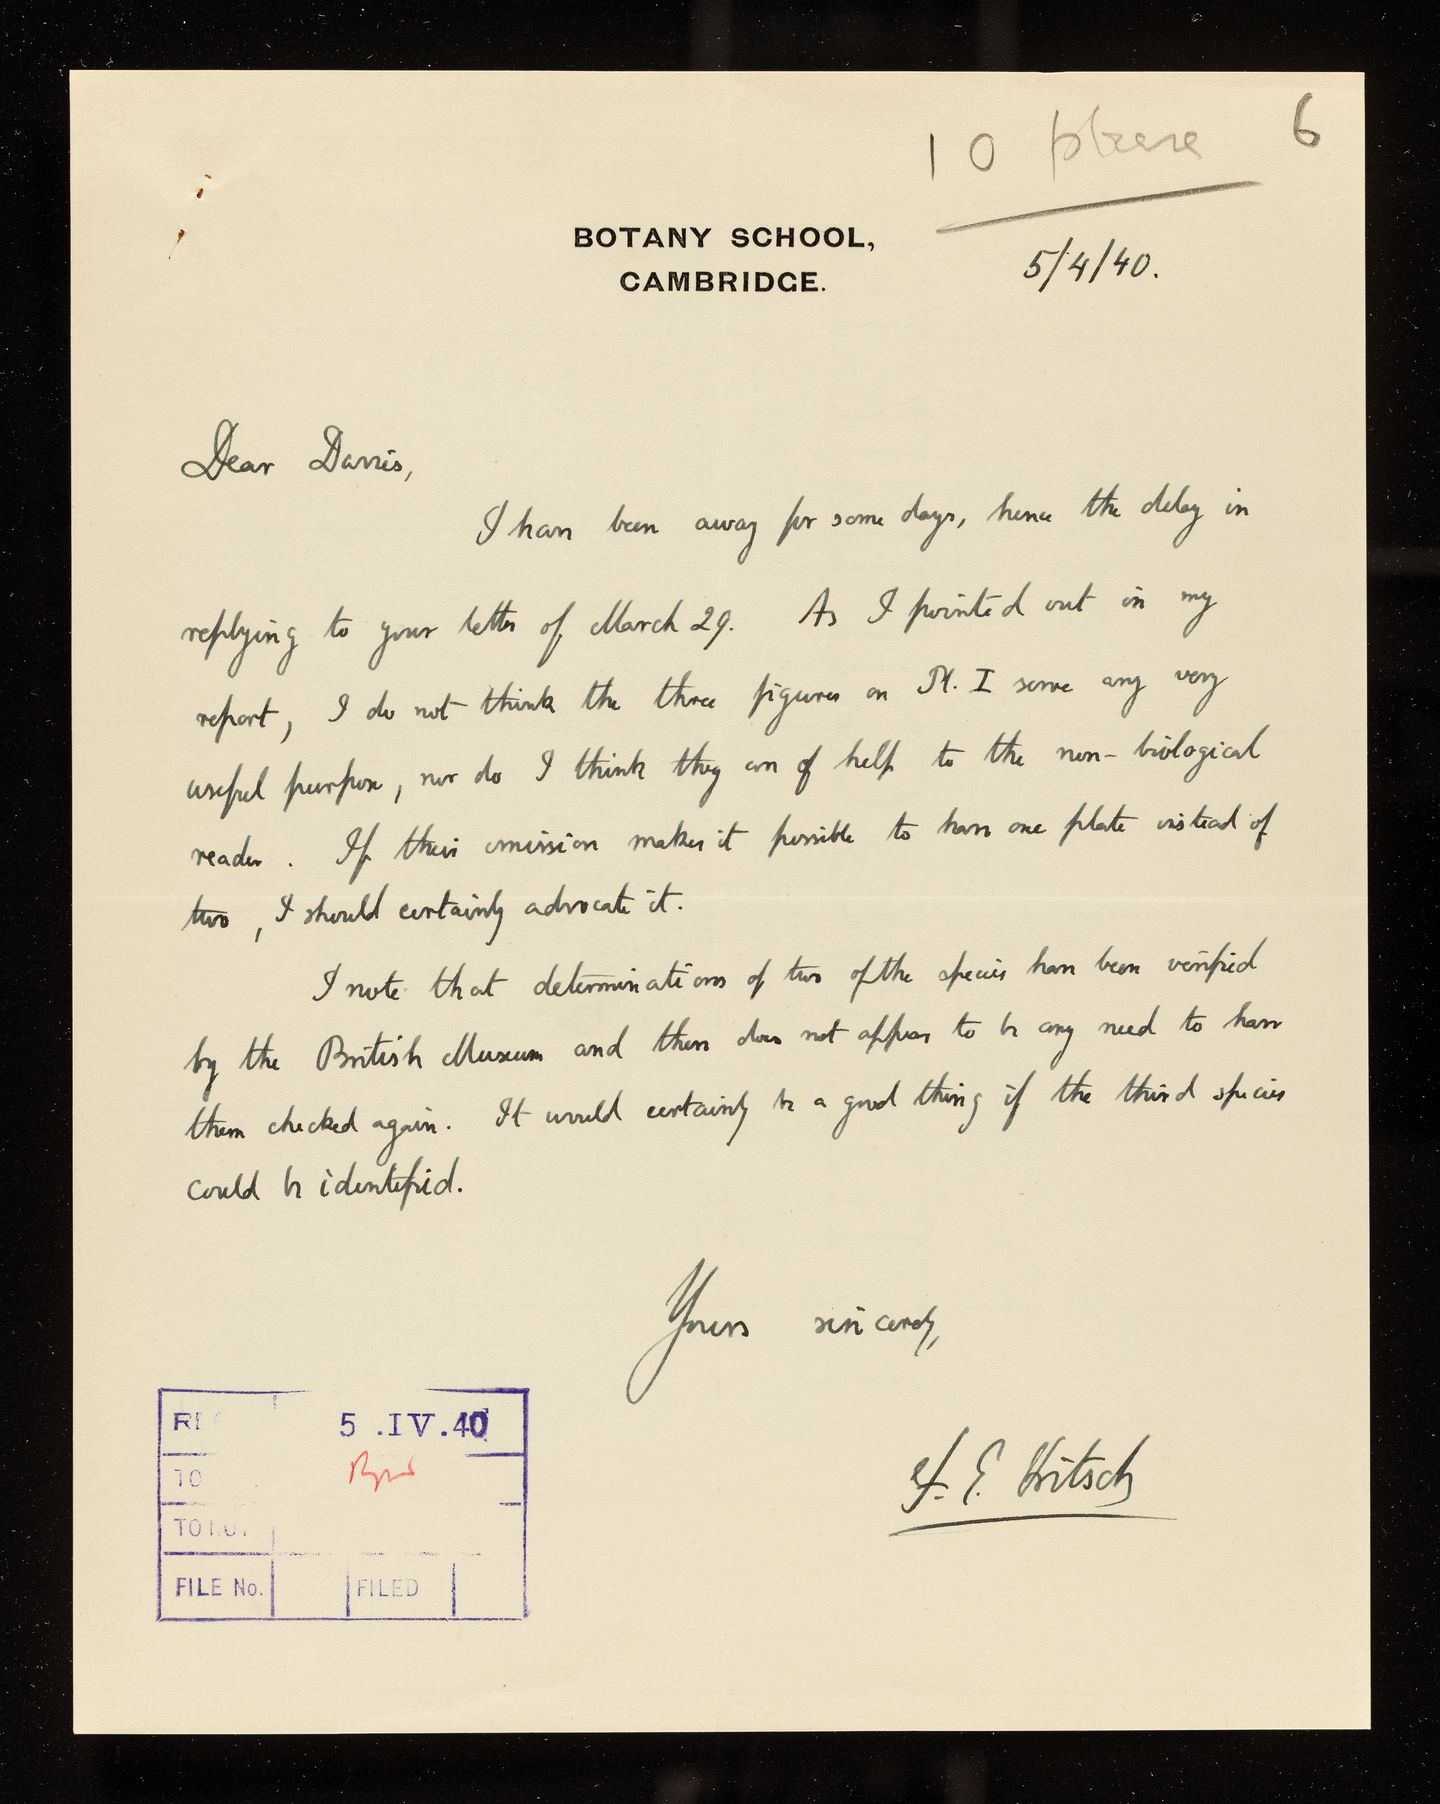 10 please 6
BOTANY SCHOOL,
CAMBRIDGE.
5/4/40.
Dear Davies,
I have been away for some days, hence the delay in
replying to your letter of March 29. As I pointed out in my
report, I do not think the three figures on Pl. I serve any very
useful purpose, nor do I think they are of help to the non-biological
reader. If their omission makes it possible to have one plate instead of
two, I should certainly advocate it.
I note that determinations of two of the species have been verified
by the British Museum and there does not appear to be any need to have
them checked again. It would certainly be a good thing if the third species
could be identified.
Yours sincerely,
F. E. Fritsch
5 .IV.40
TO
FILE No. FILED